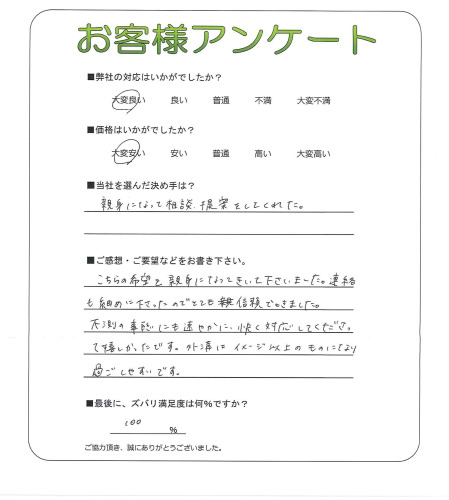 お客様アンケート
■弊社の対応はいかがでしたか？
大変良い　良い　普通　不満　大変不満
■価格はいかがでしたか？
大変安い　安い　普通　高い　大変高い
■当社を選んだ決め手は？
親身になって相談、提案をしてくれた。
■ご感想・ご要望などをお書き下さい。
こちらの希望を親身になってきいて下さいました。連絡
も細めに下さったのでとても信頼できました。
不測の事態にも速やかに、快く対応してくださっ
て嬉しかったです。外溝はイメージ以上のものになり
過ごしやすいです。
■最後に、ズバリ満足度は何％ですか？
100 ％
ご協力頂き、誠にありがとうございました。